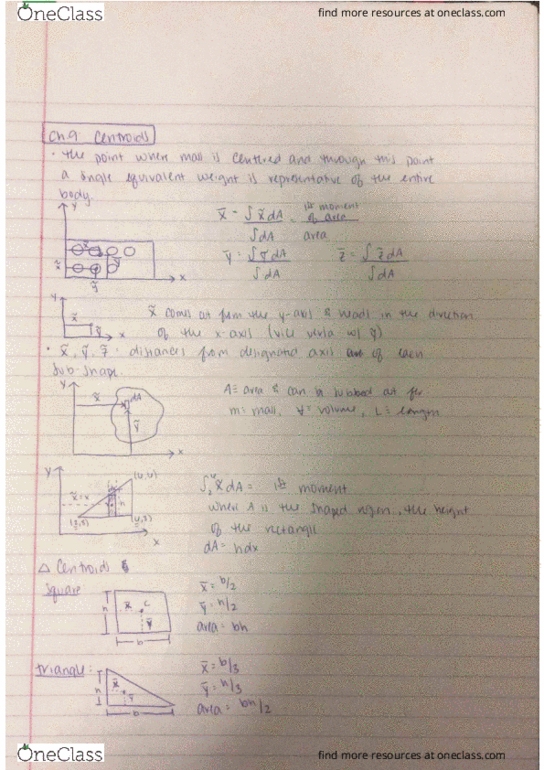 OneClass
find more resources at oneclass.com
Ch.9 Centroids
• the point where mass is centered and through this point
a single equivalent weight is representative of the entire
body.
y
x̄ = ∫x̃dA = 1st moment of area
∫dA area
ȳ = ∫ỹdA z̄ = ∫z̃dA
∫dA ∫dA
x
y
x̃ comes at from the y-axis & heads in the direction
x
of the x-axis (vice versa w/ ỹ)
• x̃, ỹ, z̃ distances from designated axis of each
sub-shape.
y
x̃
dA
ỹ
x
A = area & can be subbed out for
m = mass, V = volume, L = length
y
x̃=x
x
x̃dA = 1st moment
where A is the shaped region, the height
of the rectangle
dA = hdx
△ Centroids
Square
h
x̄
C
ȳ
b
x̄ = b/2
ȳ = h/2
area = bh
triangle:
h
x̄
b
x̄ = b/3
ȳ = h/3
area = bh/2
OneClass
find more resources at oneclass.com